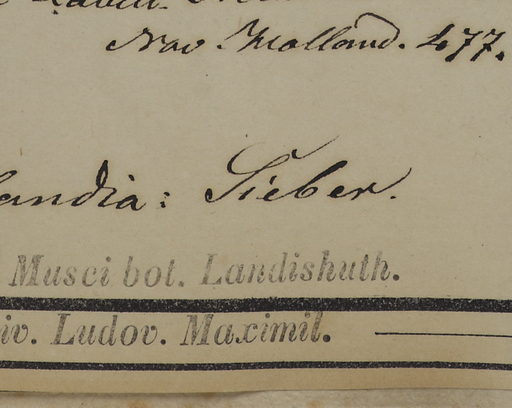 Labill.
Nov. Holland. 477.
landia: Sieber.
Musei bot. Landishuth.
iv. Ludov. Maximil.